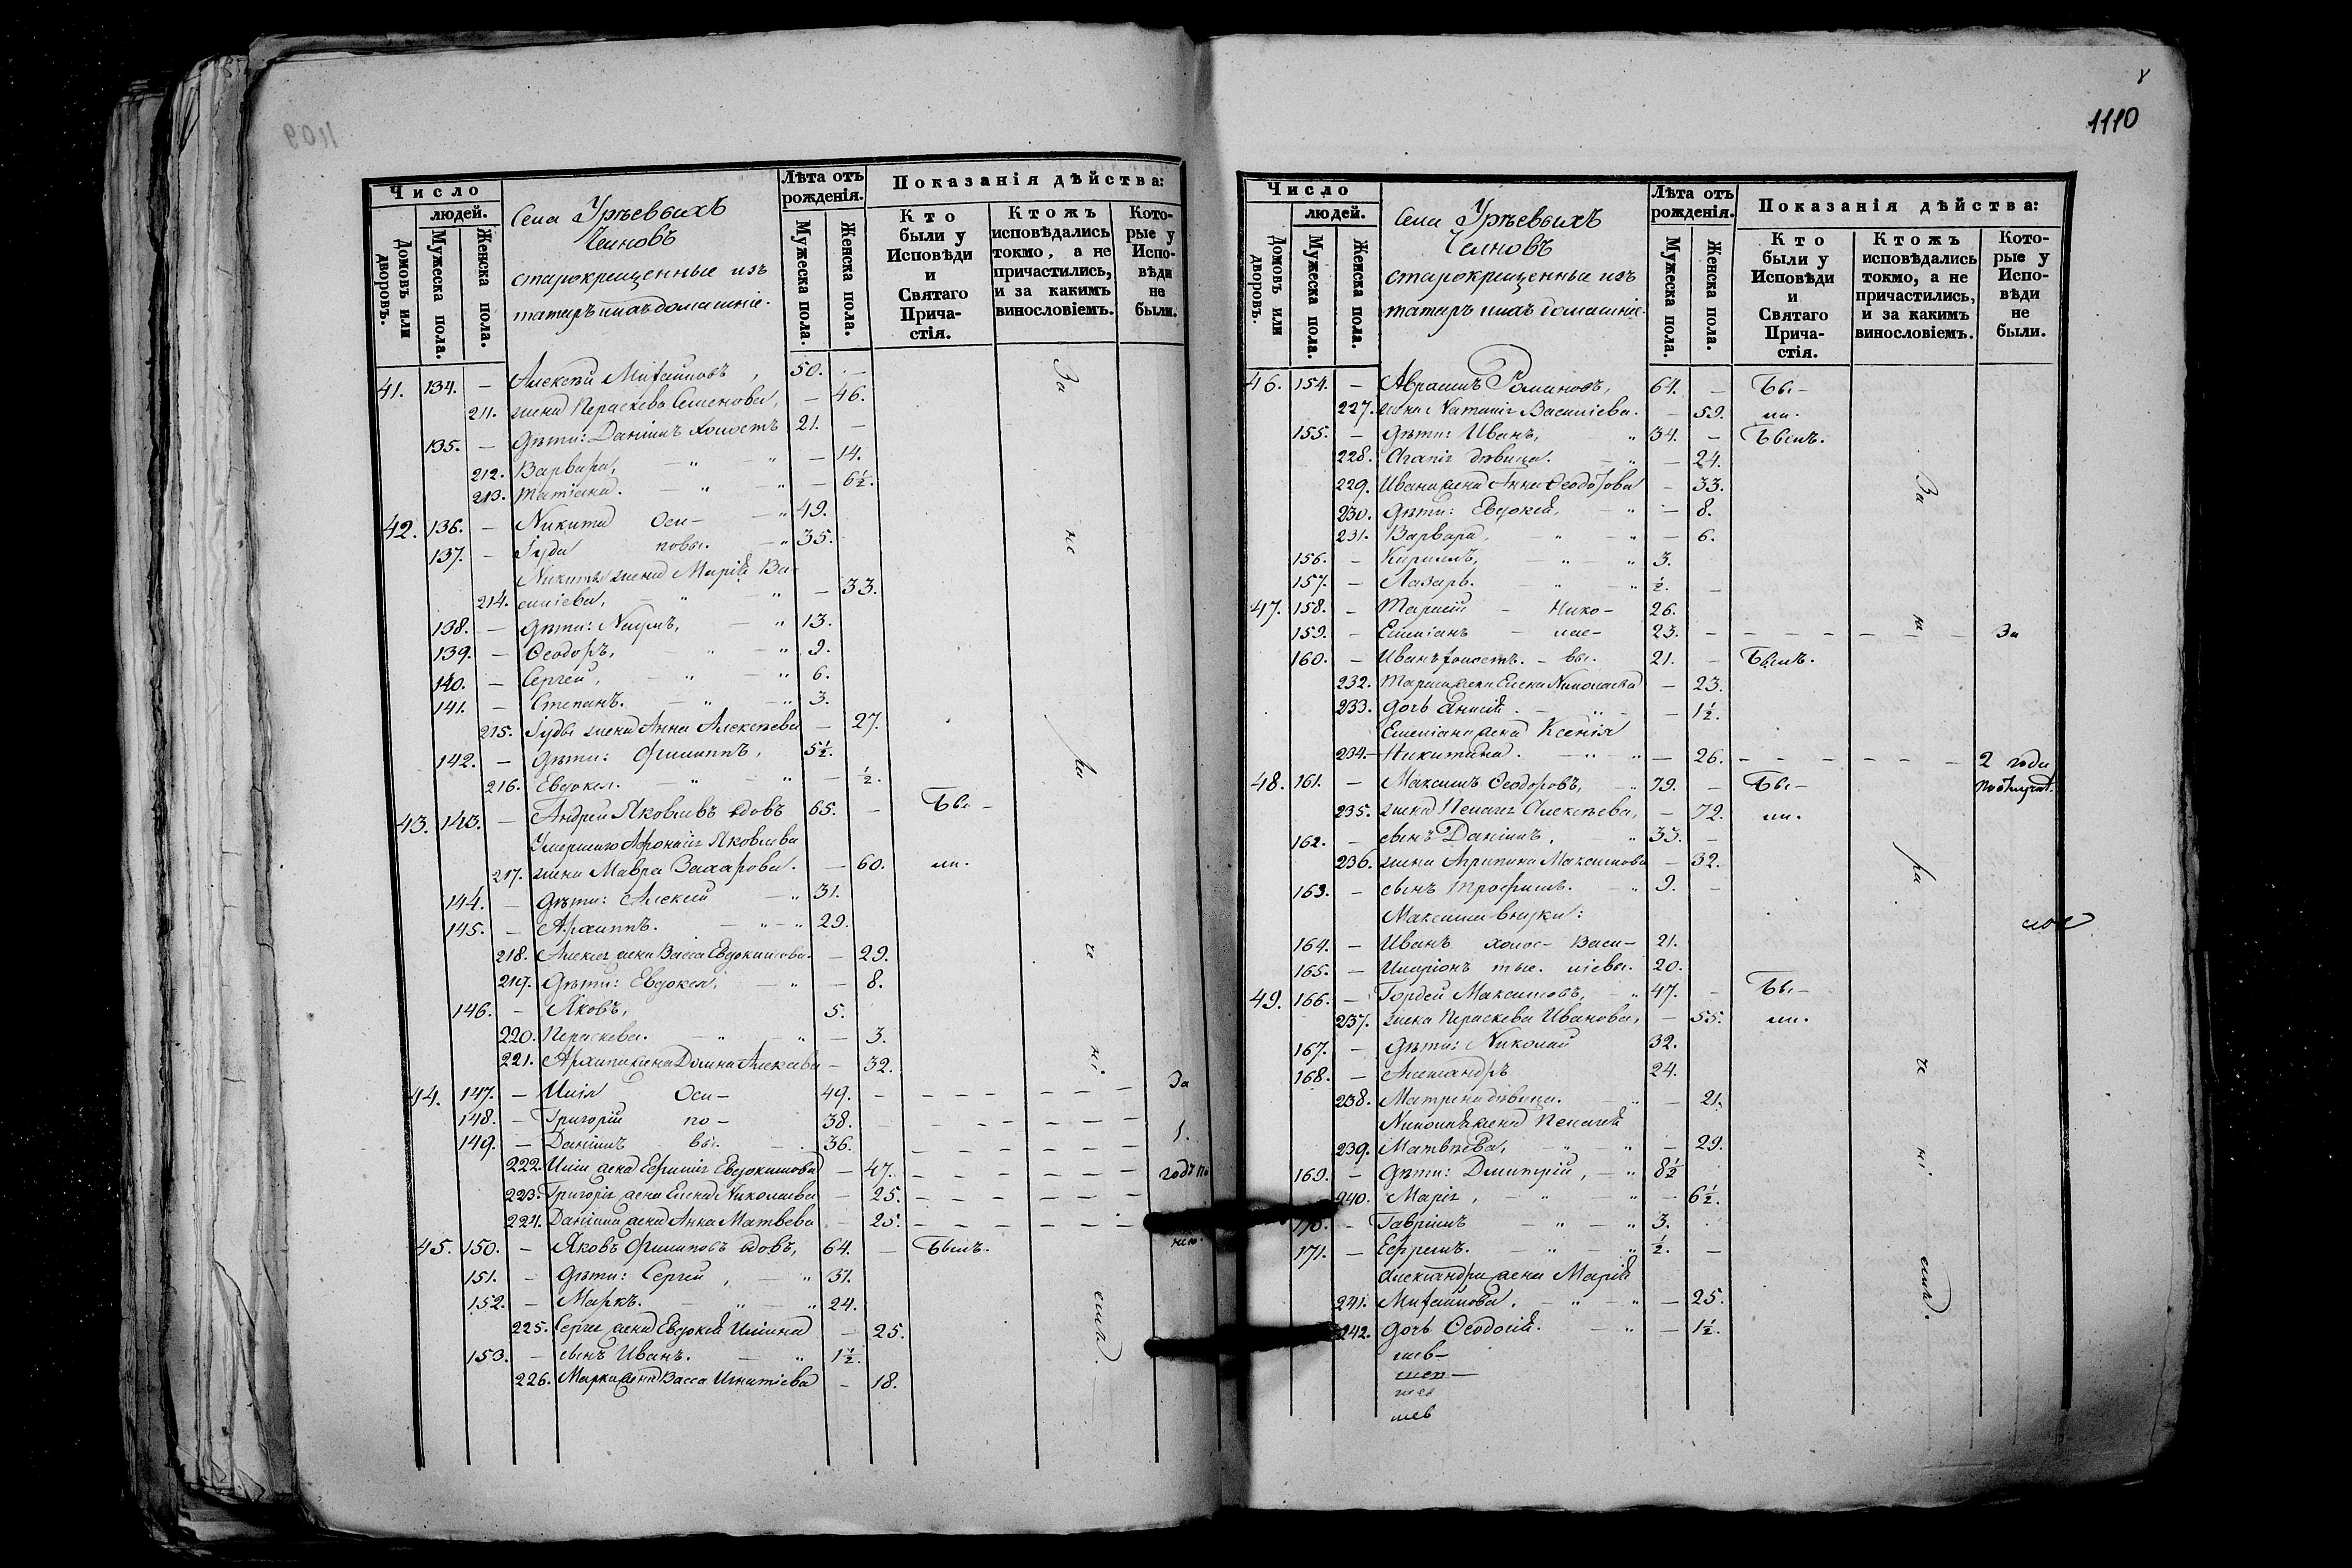 Число
людей.
Домовъ или дворовъ.
Мужеска пола.
Женска пола.
Села Урѣевыхъ
Челновъ
старокрещенные изъ
татаръ
Лѣта отъ
рожденія.
Мужеска пола.
Женска пола.
Показанія дѣйства:
Кто
были у
Исповѣди
и
Святаго
Прича-
стія.
Ктожъ
исповѣдались
токмо, а не
причастились,
и за какимъ
винословіемъ.
Кото-
рые у
Испо-
вѣди
не
были.
41. 134. – Алексѣй Михайловъ, 50. –
211. жена Параскева Семенова, – 46.
135. – Дѣти: Даніилъ холостъ 21. –
212. Варвара, – " – " – 14.
213. Татіана. – " – " – 6½.
42. 136. – Никита Оси- – " 49.
137. – Іуда повы. – " 35.
Никиты жена Марія Ва-
214. силіева, – " – " – 33.
138. – Дѣти: Наумъ, – " 13.
139. – Ѳеодоръ, – " – " 9.
140. – Сергей, – " – " 6.
141. – Степанъ. – " – " 3.
215. Іуды жена Анна Алексѣева – 27.
142. – Дѣти: Филиппъ, 5½.
216. Евдокея. – " – " – ½.
43. 143. – Андрей Яковлевъ вдовъ 65. – Бы-
Умершаго Афонасія Яковлева
217. жена Мавра Захарова. – 60. ли.
144. – Дѣти: Алексѣй – " 31.
145. – Архиппъ. – " – " 29.
218. Алексея жена Васса Евдокимова. – 29.
219. Дѣти: Евдокея, – " – 8.
146. – Яковъ, 5.
220. Параскева. – " – " – 3.
221. Архипа жена Домна Алексѣева – 32.
44. 147. – Илія Оси- 49. – – – – – – – За
148. – Григорій по- 38. – – – – – –
149. – Даніилъ вы. 36. – – – – – – 1.
222. Иліи жена Ефимія Евдокимова – 47. – – – – – – годъ по
223. Григорія жена Елена Николаева – 25. – – – – – –
224. Даніила жена Анна Матвѣева – 25. – – – – – –
45. 150. – Яковъ Филиповъ вдовъ, 64. – Былъ.
151. – Дѣти: Сергей, – " 31.
152. – Маркъ. – " – " 24.
225. Сергея жена Евдокія Иліина – 25.
153. – сынъ Иванъ. – " 1½.
226. Марка жена Васса Игнатіева – 18.
За не ра че ні емъ.
1110
Число
людей.
Домовъ или дворовъ.
Мужеска пола.
Женска пола.
Села Урѣевыхъ
Челновъ
старокрещенные изъ
татаръ
Лѣта отъ
рожденія.
Мужеска пола.
Женска пола.
Показанія дѣйства:
Кто
были у
Исповѣди
и
Святаго
Прича-
стія.
Ктожъ
исповѣдались
токмо, а не
причастились,
и за какимъ
винословіемъ.
Кото-
рые у
Испо-
вѣди
не
были.
46. 154. – Абрамъ Романовъ, 64. – Бы-
227. жена Наталія Василіева. – 59. ли.
155. – Дѣти: Иванъ, " 34. – Былъ.
228. Агапія дѣвица. – " – 24.
229. Ивана жена Анна Ѳеодорова – 33.
230. Дѣти: Евдокія, – " – 8.
231. Варвара, – " – " – 6.
156. – Кириллъ, – " – " 3.
157. – Лазарь. – " – " ½. –
47. 158. – Тарасій – Нико- 26.
159. – Емеліанъ – лае- 23. – – – – – – – За
160. – Иванъ холостъ. – вы. 21. – Былъ.
232. Тарасія жена Елена Николаева – 23.
233. дочь Анисія. – " – – 1½.
Емеліана жена Ксенія
234. Никитина. – " " – 26. – – – – – – 2 года
48. 161. – Максимъ Ѳеодоровъ, – " 79. – Бы-
235. жена Пелагія Алексѣева, – 72. ли.
162. – сынъ Даніилъ, – " 33. –
236. жена Агрипина Максимова – 32.
163. – сынъ Трофимъ. – " 9. –
Максима внуки:
164. – Иванъ холос- Васи- 21.
165. – Иларіонъ тые. ліевы. 20.
49. 166. – Гордей Максимовъ, – " 47. – Бы-
237. жена Параскева Иванова, – 55. ли.
167. – Дѣти: Николай 32.
168. – Александръ 24.
238. Матрена дѣвица. – " – 21.
Николая жена Пелагія
239. Матвѣева, – " – " – 29.
169. – Дѣти: Дмитрій, – " 8½
240. Марія, – " " – 6½.
170. – Гавріилъ – " – " 3.
171. – Ефремъ. – " – " ½. –
Александра жена Марія
241. Михайлова. – " – " – 25.
242. дочь Ѳеодосія. – " – 1½.
За не ра че ні емъ.